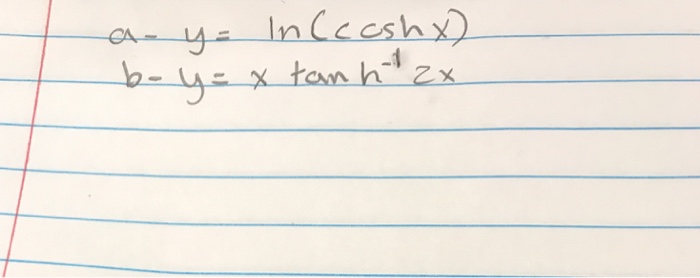 a- y= ln(coshx)
b- y= x tanh⁻¹ 2x